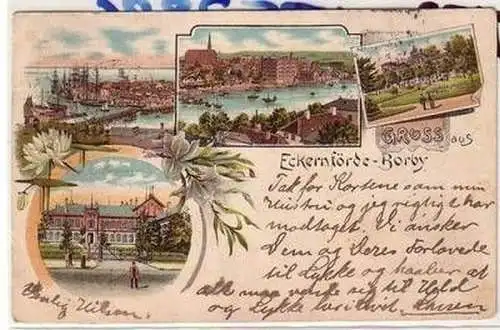 GRUSS aus
Eckernförde-Borby
Tak for Kortene som min
Hustru og jeg rigtigt har
modtaget. Vi ønsker
Dem og Deres Forlovede
til Lykke og haaber at
alt maa vende sig til Held
og Lykke
Venlig Hilsen.